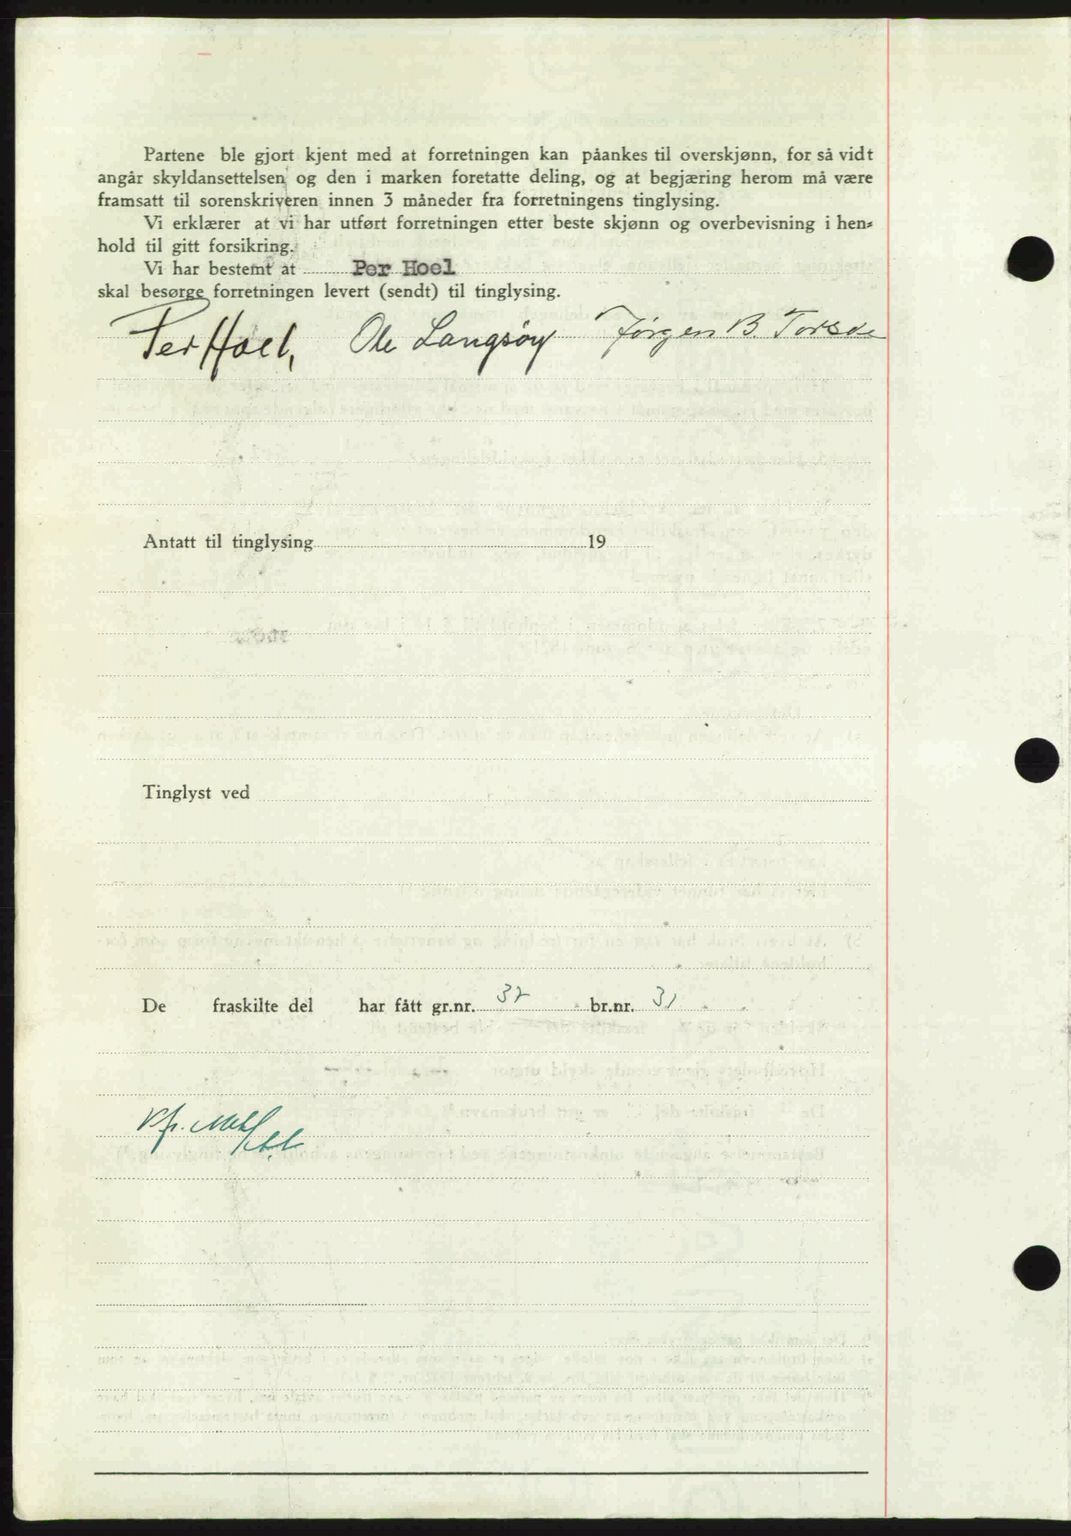 Partene ble gjort kjent med at forretningen kan påankes til overskjønn, for så vidt
angår skyldansettelsen og den i marken foretatte deling, og at begjæring herom må være
framsatt til sorenskriveren innen 3 måneder fra forretningens tinglysing.
Vi erklærer at vi har utført forretningen etter beste skjønn og overbevisning i hen-
hold til gitt forsikring.
Vi har bestemt at Per Hoel
skal besørge forretningen levert (sendt) til tinglysing.
Per Hoel, Ole Langsøy Jørgen B. Torske
Antatt til tinglysing 19
Tinglyst ved
De fraskilte del har fått gr.nr. 32 br.nr. 31